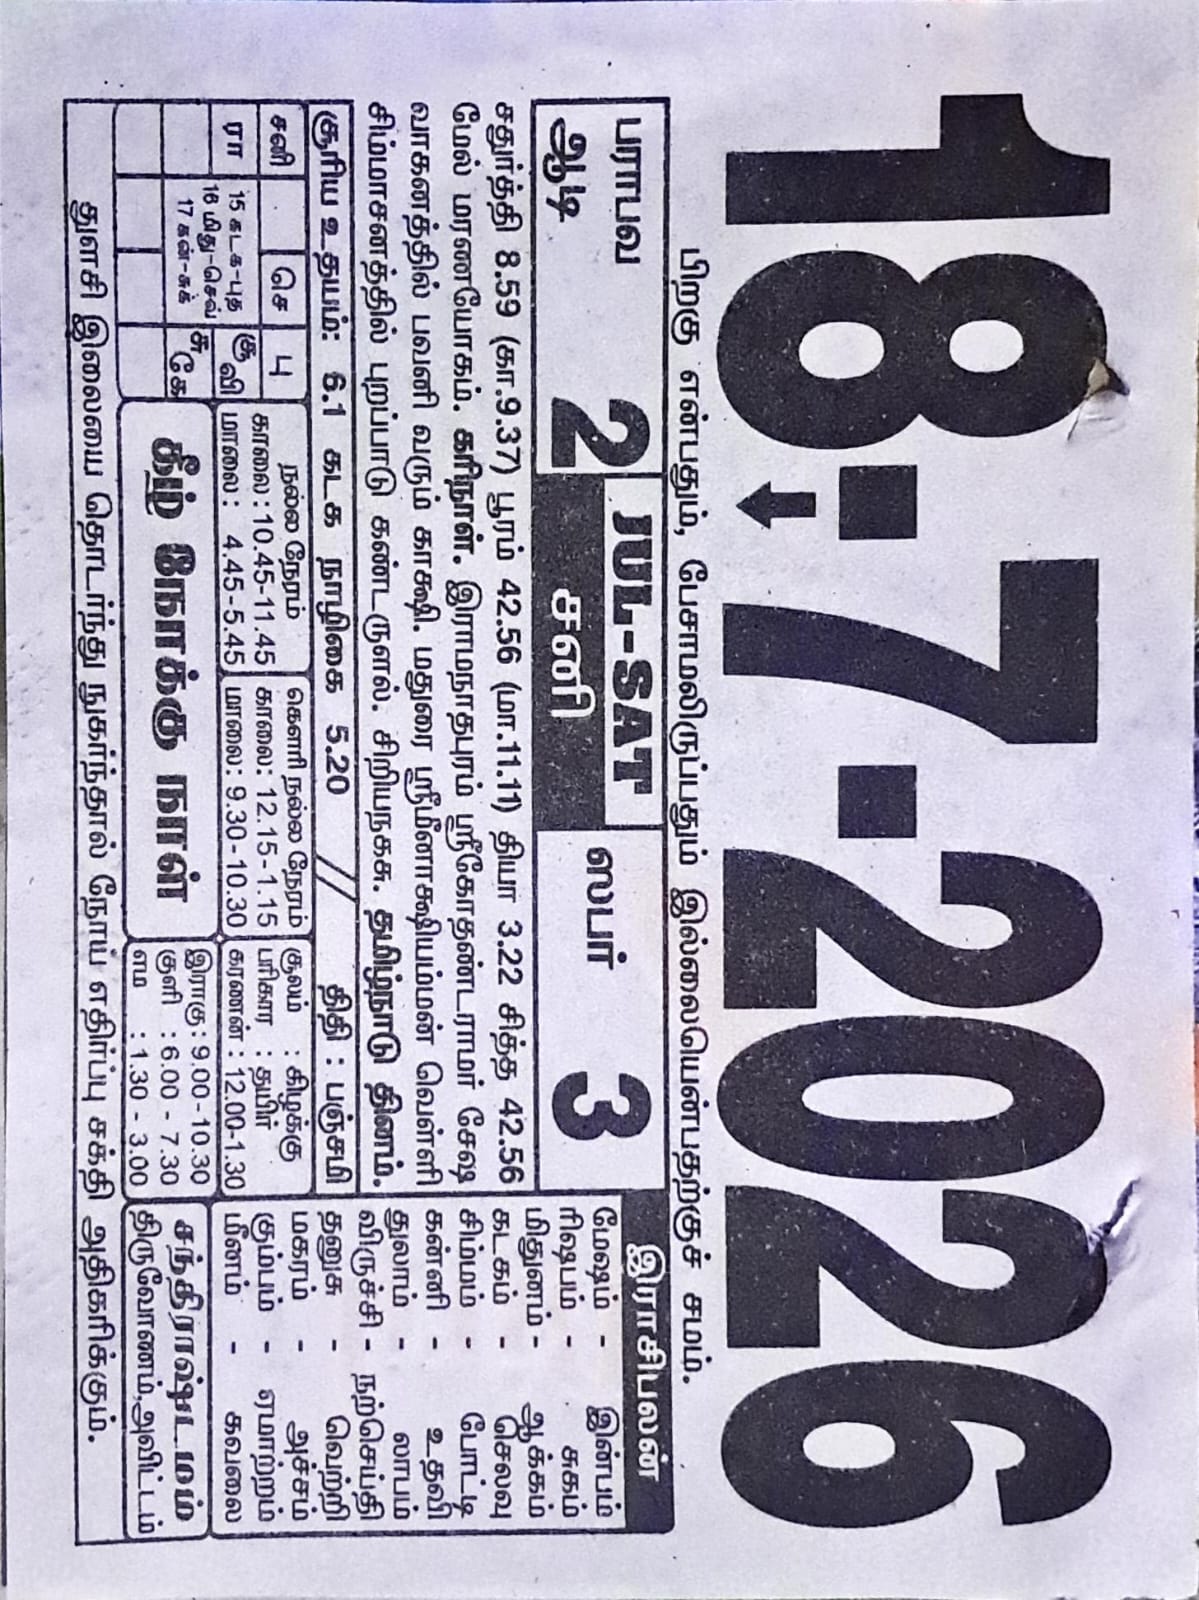 18-7-2026
பிறகு என்பதும், பேசாமலிருப்பதும் இல்லையென்பதற்குச் சமம்.
பராபவ
ஆடி 2
JUL-SAT
சனி
ஸபர் 3
சதுர்த்தி 8.59 (கா.9.37) பூரம் 42.56 (மா.11.11) தியா 3.22 சித்த 42.56
மேல் மரணயோகம். கரிநாள். இராமநாதபுரம் ஸ்ரீகோதண்டராமர் சேஷ
வாகனத்தில் பவனி வரும் காக்ஷி. மதுரை ஸ்ரீமீனாக்ஷியம்மன் வெள்ளி
சிம்மாசனத்தில் புறப்பாடு கண்டருளல். சிறியநகசு. தமிழ்நாடு தினம்.
சூரிய உதயம்: 6.1 கடக நாழிகை 5.20 // திதி : பஞ்சமி
சனி செ பு
ரா
15 கடக-புத
16 மிது-செவ்
17 கன்-சுக்
குவி
சுகே
நல்ல நேரம்
காலை : 10.45-11.45
மாலை : 4.45-5.45
கௌரி நல்ல நேரம்
காலை: 12.15-1.15
மாலை: 9.30-10.30
சூலம் : கிழக்கு
பரிகார : தயிர்
கரணன் : 12.00-1.30
கீழ் நோக்கு நாள்
இராகு : 9.00-10.30
குளி : 6.00 - 7.30
எம : 1.30 - 3.00
இராசிபலன்
மேஷம் - இன்பம்
ரிஷபம் - சுகம்
மிதுனம் - ஆக்கம்
கடகம் - செலவு
சிம்மம் - போட்டி
கன்னி - உதவி
துலாம் - லாபம்
விருச்சி - நற்செய்தி
தனுசு - வெற்றி
மகரம் - அச்சம்
கும்பம் - ஏமாற்றம்
மீனம் - கவலை
சந்திராஷ்டமம்
திருவோணம், அவிட்டம்
துளசி இலையை தொடர்ந்து நுகர்ந்தால் நோய் எதிர்ப்பு சக்தி அதிகரிக்கும்.